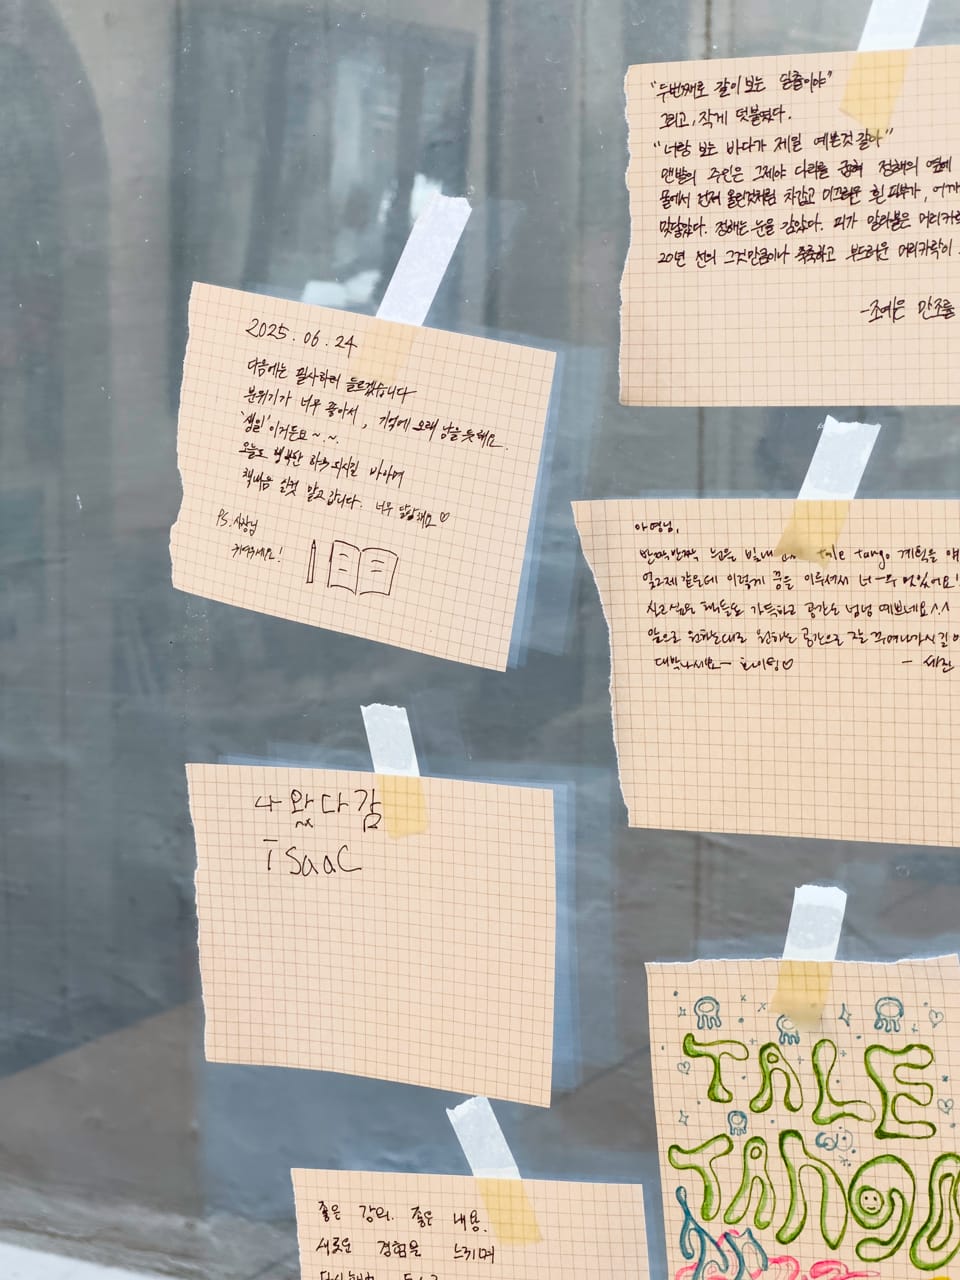 "두번째로 같이 보는 일출이야"
그리고, 작게 덧붙였다.
"너랑 보는 바다가 제일 예쁜것 같아"
맨발의 주인은 그제야 다리를 굽혀 정해의 옆에
물에서 먼저 올린것처럼 차갑고 미끄러운 흰 피부가,
맞닿았다. 정해는 눈을 감았다. 피가 말라붙은
20년 전의 그것만큼이나 축축하고 부드러운 머리카락이
-조예은 만조를
2025.06.24
다음에는 필사하러 들르겠습니다
분위기가 너무 좋아서, 기억에 오래 남을듯해요.
'샘일'이거든요~.~.
오늘도 행복한 하루 되시길 바라며
책내음 실컷 맡고 갑니다. 너무 달달해요♡
PS. 사장님
귀여우세요!
아영님,
반짝반짝 눈을 빛내 tale tango 계획을
엊그제같은데 이렇게 꿈을 이루셔서 너-무 멋있어요!
가득하고 공간도 넘넘 예쁘네요^^
앞으로 원하는대로 원하는 공간으로 꾸며나가시길
대박나세요~ ♡
- 세진
나 왔다감
isaac
TALE
TANGO
좋은 강의. 좋은 내용.
새로운 경험을 느끼며